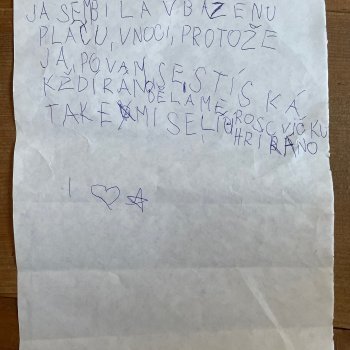 JA SEM BILA V BAZENU
PLAČU, V NOCI, PROTOŽE
JÁ, POVAN SE STÍSKÁ
KŽDIRÁN DĚLAME ROSCVIČKU
TAKE MI SE LÍ HRI RÁNO
I ♡ ☆